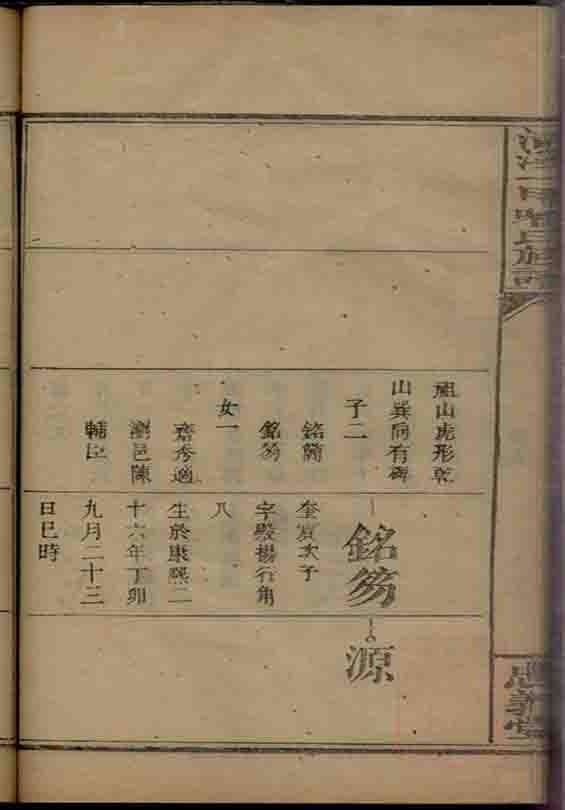 氏族譜
義堂
祖山虎形乾
山巽向有碑
子二
銘簡
銘笏
女一
齋秀適
瀏邑陳
輔臣
銘笏
奎賓次子
字殿揚行角
八
生於康熙二
十六年丁卯
九月二十三
日巳時
源